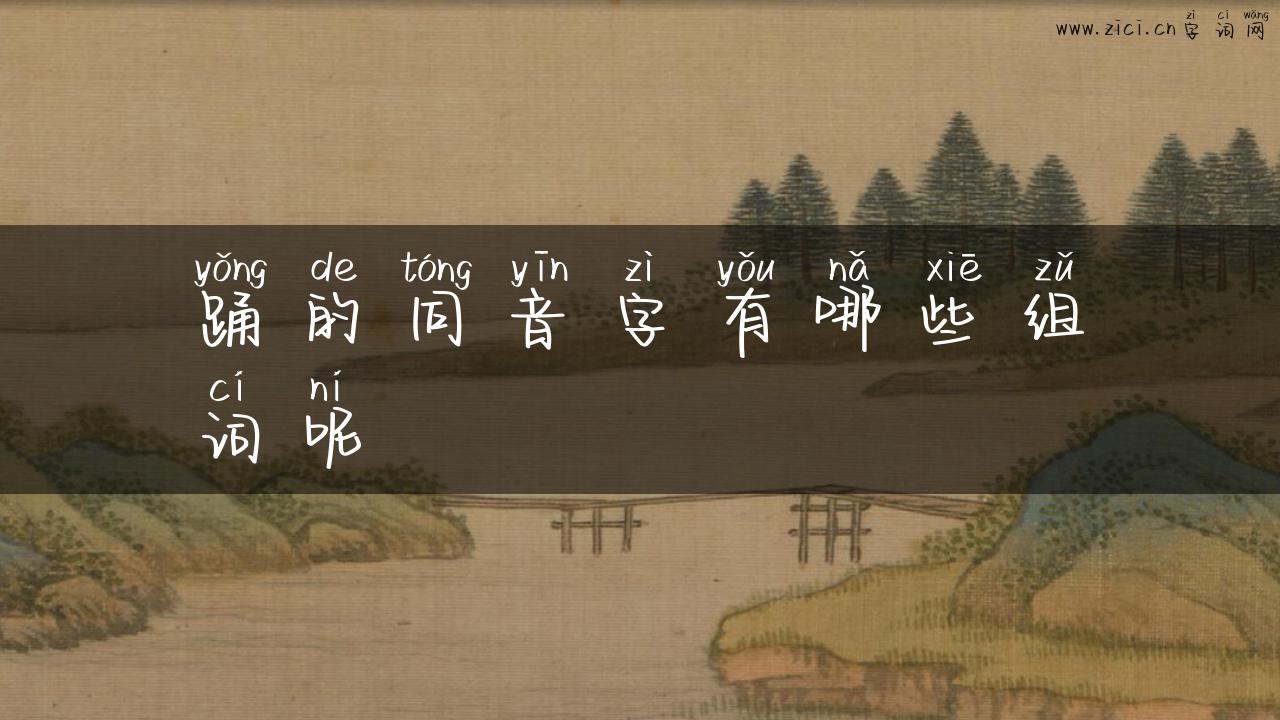 zì cí wǎng
www.zici.cn 字 词 网
yǒng de tóng yīn zì yǒu nǎ xiē zǔ
踊 的 同 音 字 有 哪 些 组
cí ní
词 呢